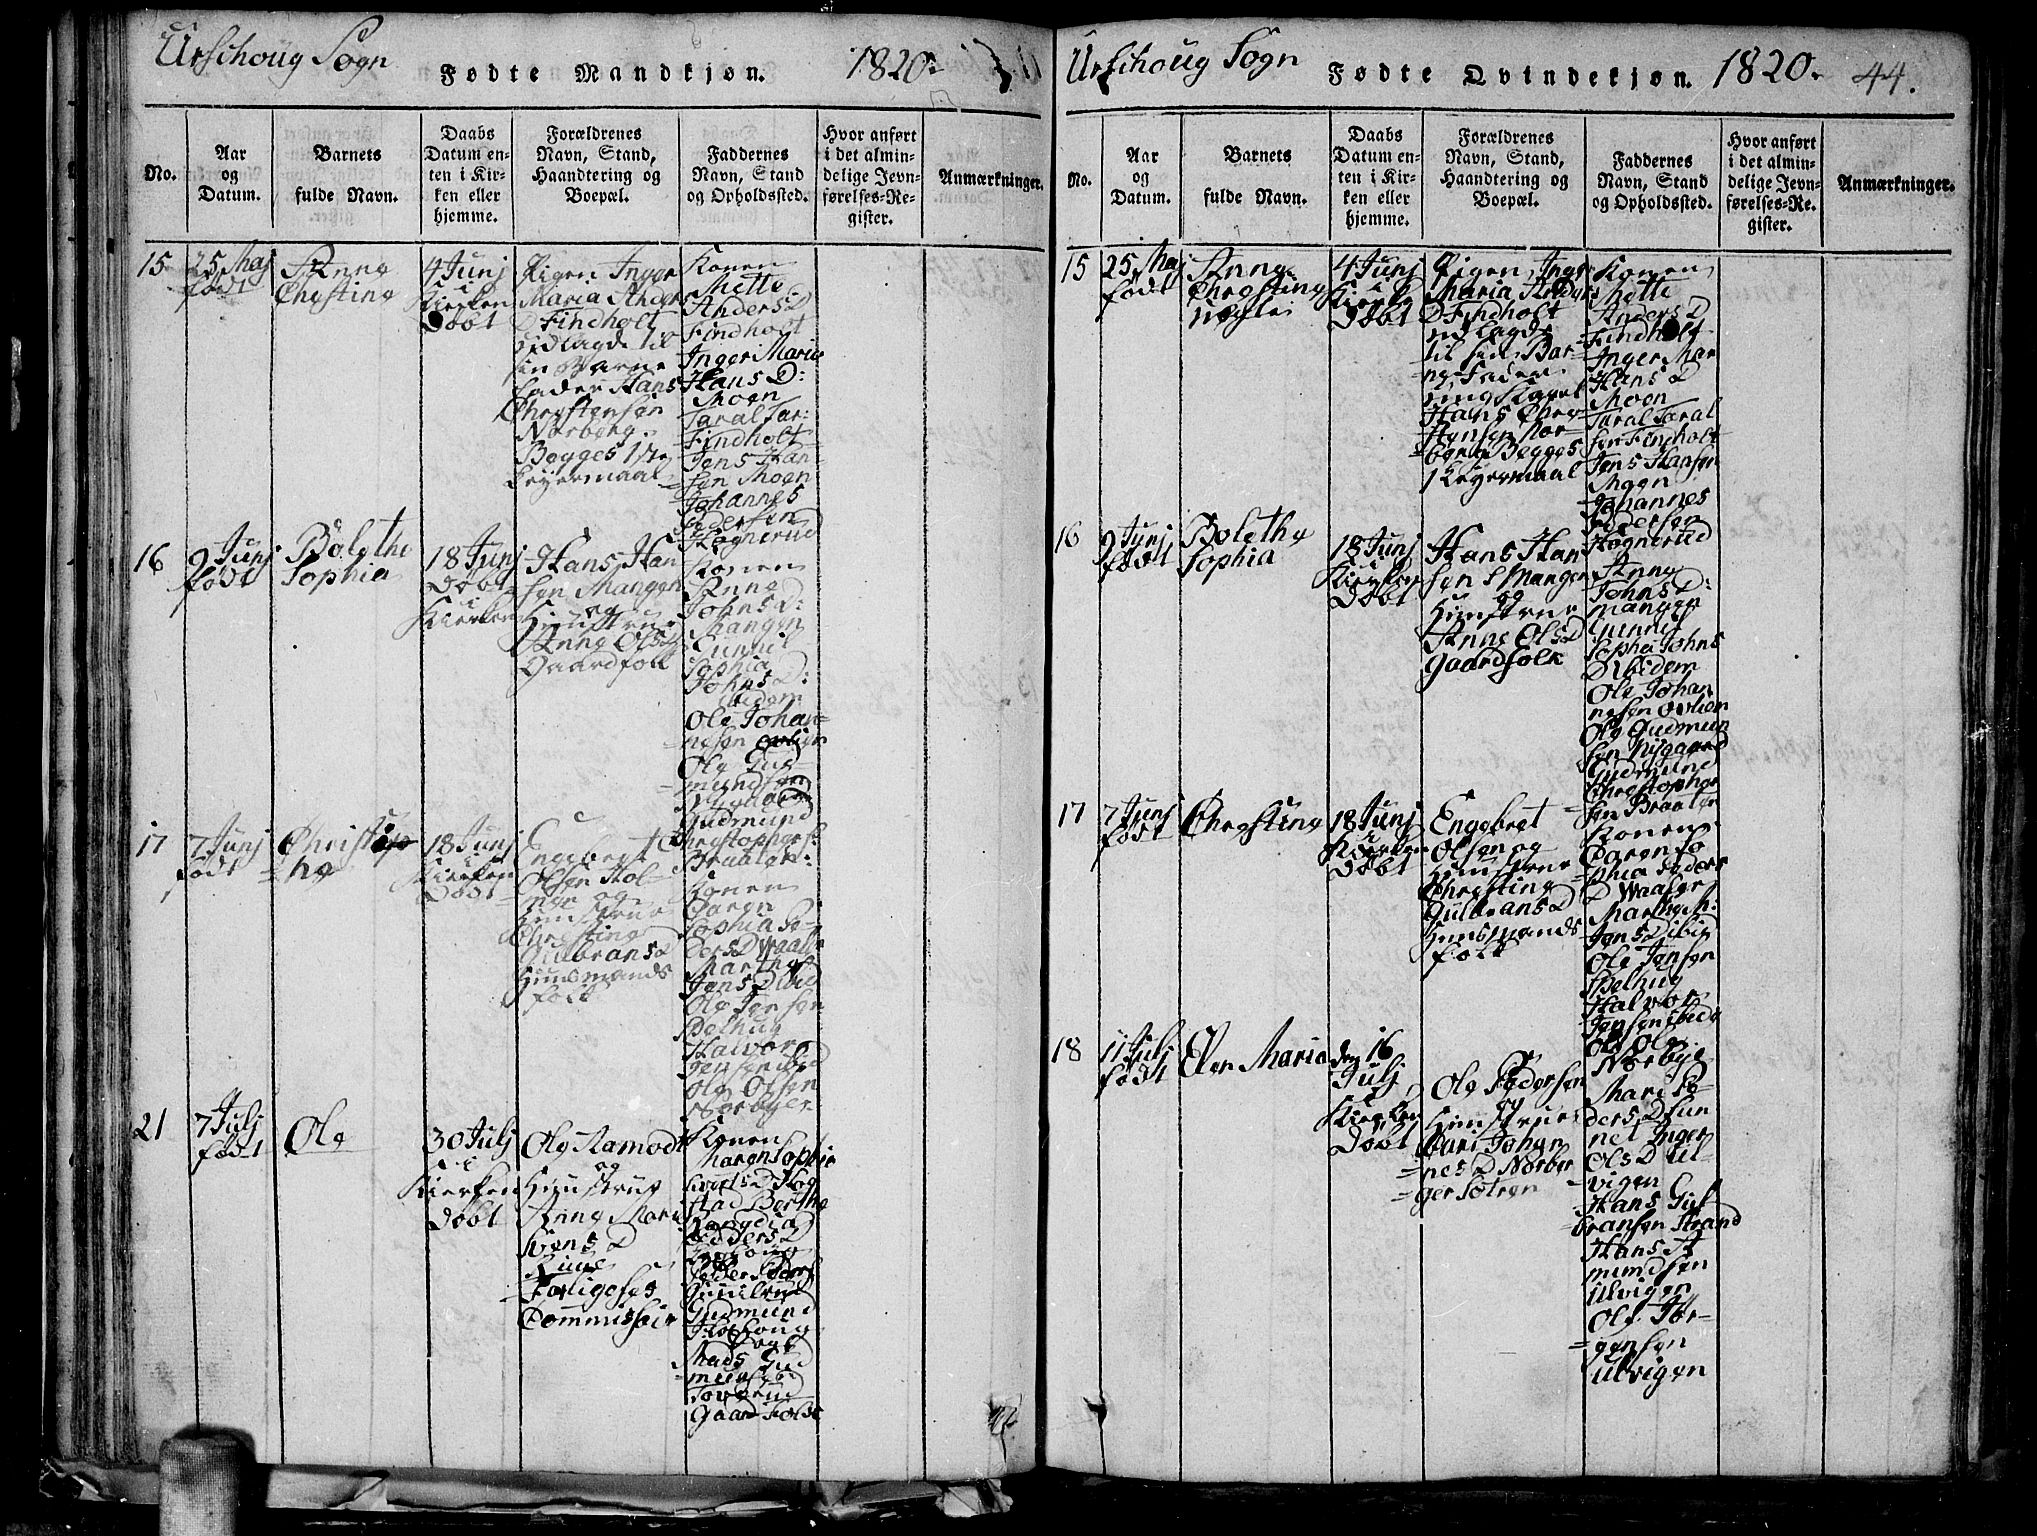 Urschoug Sogn
Fødte Mandkjøn.
1820.
No.
Aar
og
Datum.
Barnets
fulde Navn.
Daabs
Datum en-
ten i Kir-
ken eller
hjemme.
Forældrenes
Navn, Stand,
Haandtering og
Boepæl.
Faddernes
Navn, Stand
og Opholdssted.
Hvor anført
i det almin-
delige Jevn-
førelses-Re-
gister.
Anmærkninger.
15
25 Maj
født
Anne
Chrestine
4 Junj
i
Kierken
Døbt
Pigen Inger
Maria Anders
D Findholt
udlagde til
sin Barne
Fader Hans
Chrestensen
Norberg
Begges 1ste
Leyermaal
Konen
Mette
Anders D
Findholt
Inger Marie
Hans D:
Moen
Taral Tar:
Findholt
Jens Han-
sen Moen
Johannes
Pedersen
Hognerud
16
9 Junj
født
Bolethe
Sophia
18 Junj
Døbt
i
Kierken
Hans Han
sen Mangen
og
Hustrue
Anne Ols D
Gaardfolk
Konen
Anne
Johns D:
Mangen
Gunnil
Sophia
Johns D:
ibidem
Ole Johan-
nesen
Ole Gud-
mundsen
Nygaard
Gudmund
Chrestophers:
Braaten:
17
7 Junj
født
Christop
he
18 Junj
i
Kierken
Døbt
Engebret
Olsen Hol-
og
Hustrue
Chrestine
Gulbrans D
Huusmands
folk
Konen
Caren
Sophia Pe-
ders D Waaler
Marthe
Jens D ibid
Ole Jensen
Delhug
Halvor
Jensen ibid
Ole Olsen
Norbye
21
7 Julj
født
Ole
30 Julj
i
Kierken
Døbt
Ole Aamodt
og
Hustrue
Anne Marie
Svens D
Forligeses
Commissair
Konen
Maren Sophie
Berthe
Peders D
Peder Peders
Gudmund
Mads Gud
mundsen
Toverud
Gaard Folk
Urschoug Sogn
Fødte Qvindekjøn.
1820.
44.
No.
Aar
og
Datum.
Barnets
fulde Navn.
Daabs
Datum en-
ten i Kir-
ken eller
hjemme.
Forældrenes
Navn, Stand,
Haandtering og
Boepæl.
Faddernes
Navn, Stand
og Opholdssted.
Hvor anført
i det almin-
delige Jevn-
førelses-Re-
gister.
Anmærkninger.
15
25 Maj
født
Anne
Chrestine
4 Junj
i
Kierke
Døbt
Pigen Inger
Maria Anders
D Findholt
udlagde
til sin Bar-
ne Fader
ung Karl
Hans Chre
stensen Nor-
berg Begges
1 Leyermaal
Konen
Mette
Anders D
Findholt
Inger Mar
Hans D
Moen
Taral Taral
sen Findholt
Jens Hansen
Moen
Johannes
Pedersen
Hognerud
16
9 Junj
født
Bolethe
Sophia
18 Junj
i
Kierken
Døbt
Hans Han
sen S Mangen
og
Hustrue
Anne Ols D
Gaardfolk
Anne
Johns D:
Mangen
Gunnil
Sophia Johns
D ibidem
Ole Johan
nesen
Ole Gudmun
sen Nygaard
Gudmund
Chrestopher
sen Braaten
17
7 Junj
født
Chrestine
18 Junj
i
Kierken
Døbt
Engebret
Olsen og
Hustrue
Chrestine
Gulbrans D
Huusmands
folk
Konen
Caren So
phia Peders
D Waaler
Marthe M:
Jens D ibid
Ole Jensen
Delhug
Halvor
Jensen ibid
Ole Ole
Norbye
18
11 Julj
født
Elen Maria
den 16
Julj
i
Kierken
Døbt
Ole Pedersen
og
Hustrue
Kari Johan
nes D Norber
ger Sætren
Mari Pe-
ders D Fun
net Inger
Ols D Ul-
vigen
Hans Gul
bransen Strand
Hans A
mundsen
Ulvigen
Ole Jør-
gensen
Ulvigen